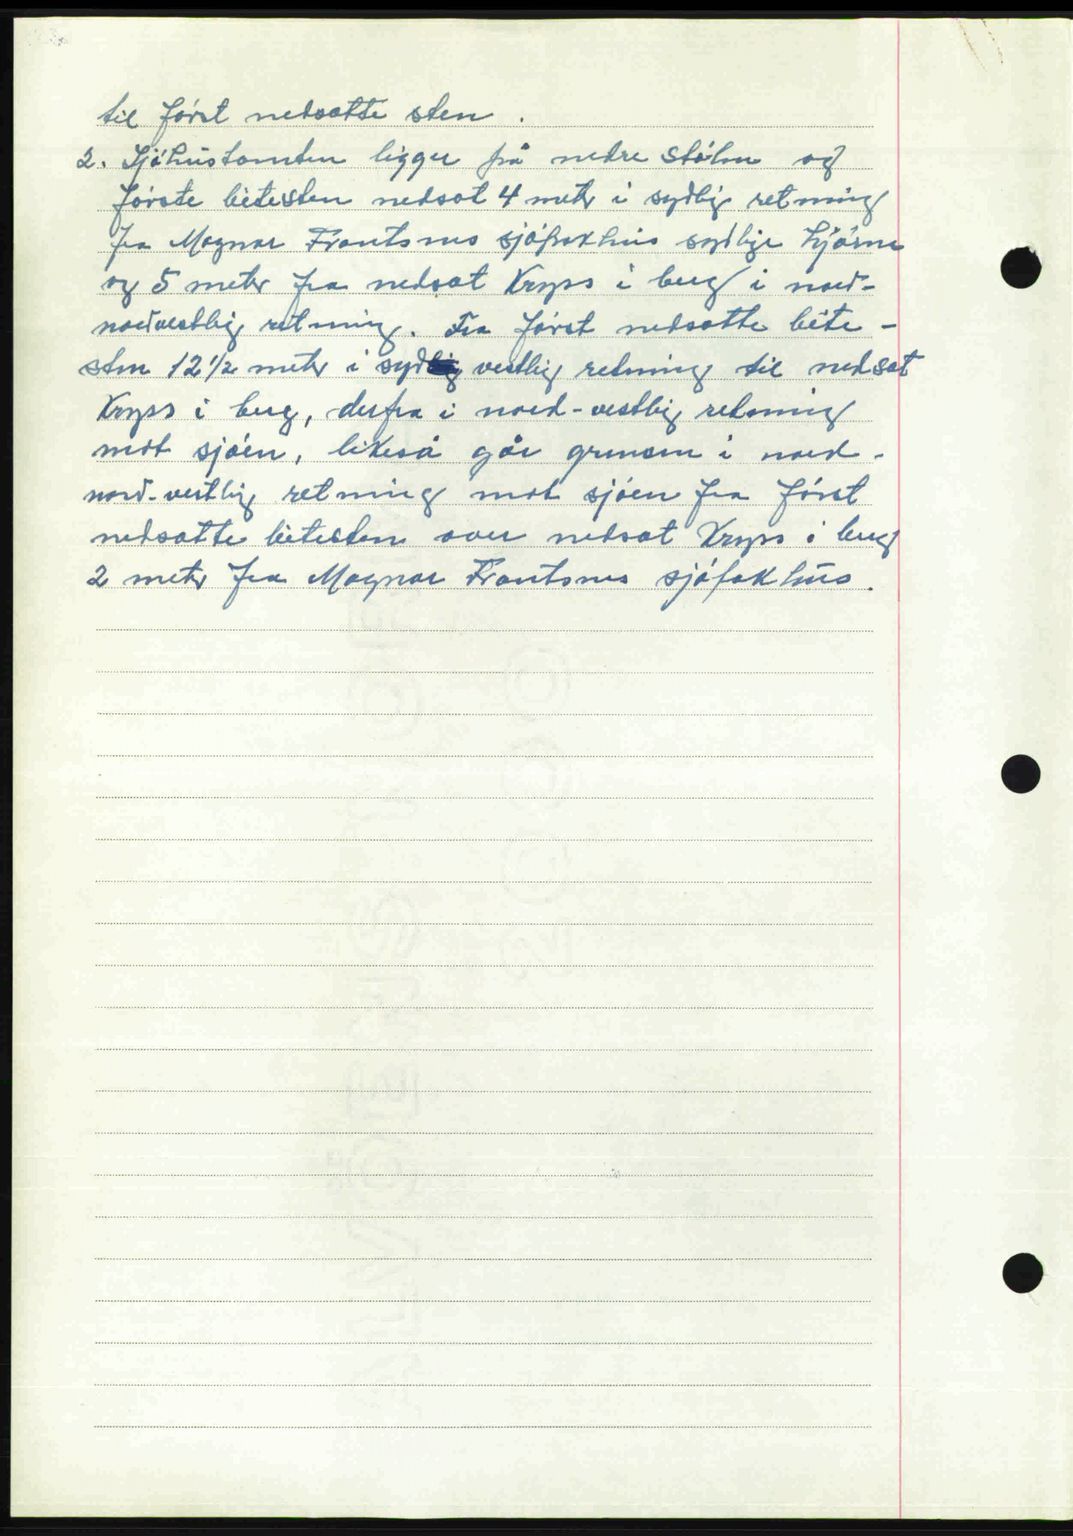 til först nedsatte sten .
2. Sjöhustomten ligger på nedre Stölen og
förste bitesten nedsat 4 meter i sydlig retning
fra Magnar Frantsens sjöfoxhus sydlige hjörne
og 5 meter fra nedsat Kryss i berg i nord-
nordvestlig retning. Fra först nedsatte bite-
sten 12 1/2 meter i syd vestlig retning til nedsat
Kryss i berg, derfra i nord-vestlig retning
mot sjöen, likeså går grensen i nord-
nord-vestlig retning mot sjöen fra först
nedsatte bitesten over nedsat Kryss i berg
2 meter fra Magnar Frantsens sjöfoxhus.